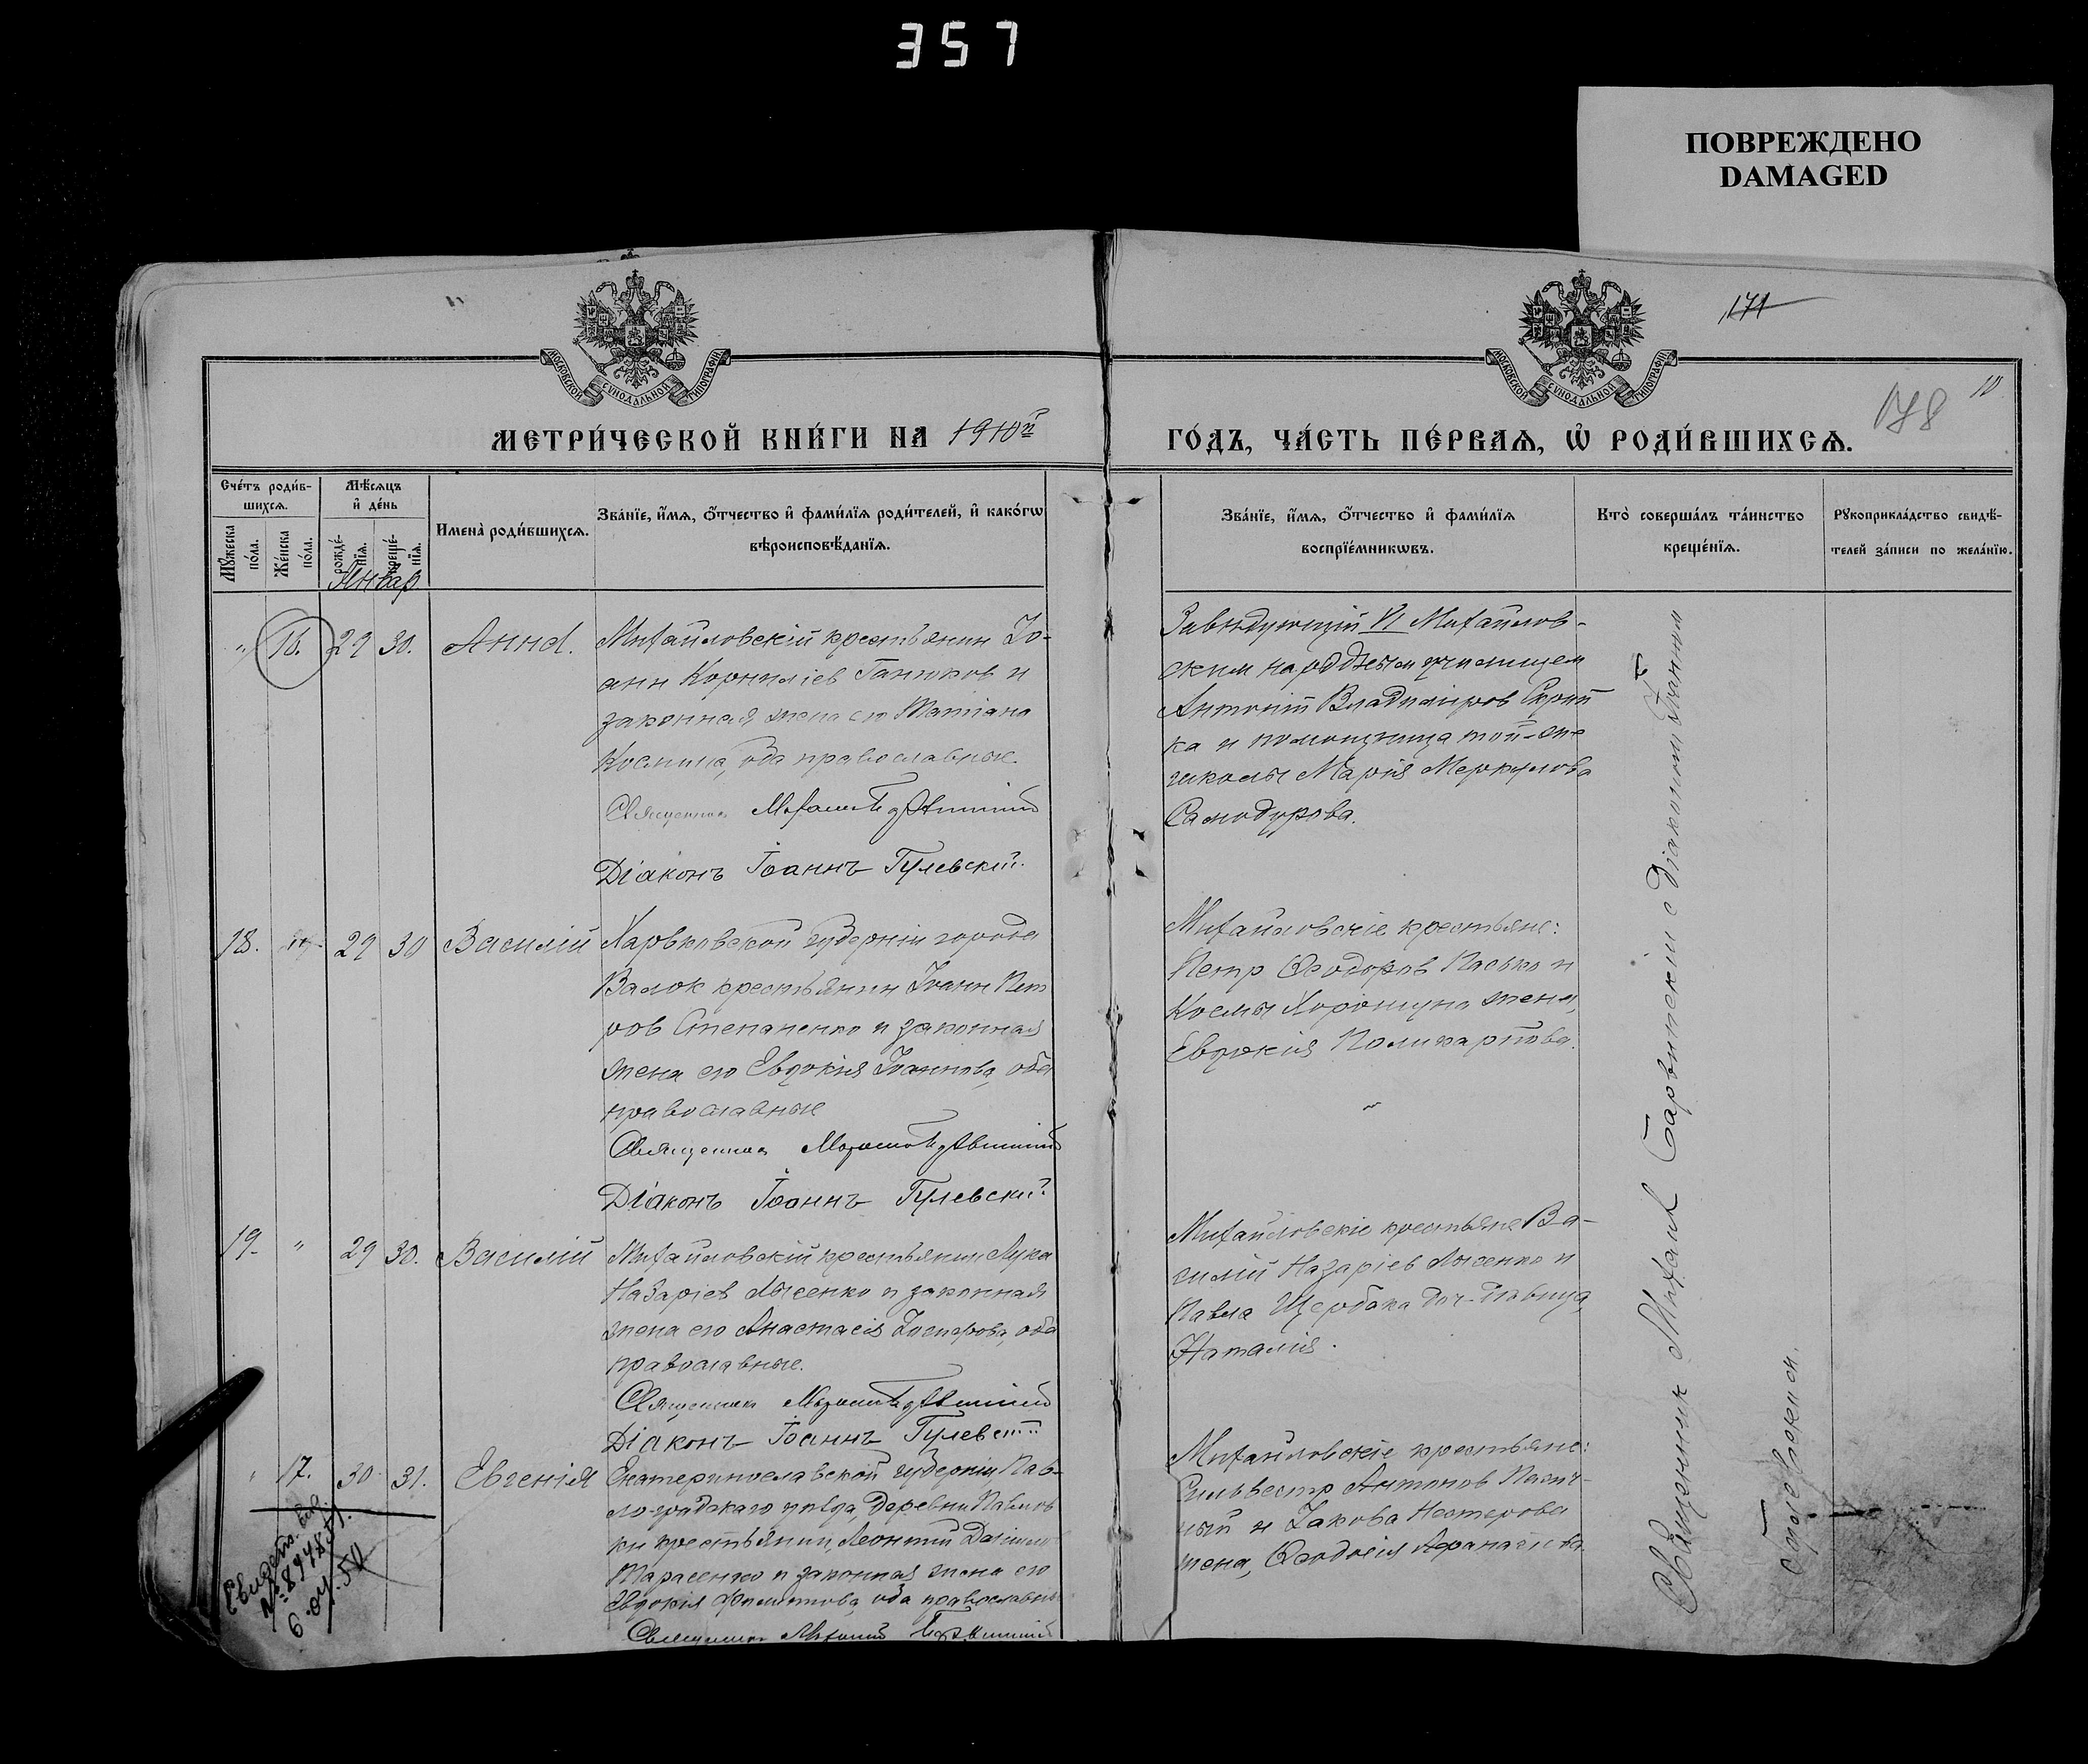 357
ПОВРЕЖДЕНО
DAMAGED
МОСКОВСКОЙ СѴНОДАЛЬНОЙ ТИПОГРАФІИ
МОСКОВСКОЙ СѴНОДАЛЬНОЙ ТИПОГРАФІИ
171
178
10
МЕТРИ́ЧЕСКОЙ КНИ́ГИ НА 1910й
ГО́ДЪ, ЧА́СТЬ ПЕ́РВАѦ, Ѡ҆ РОДИ́ВШИХСѦ.
Сче́тъ роди́в-
шихсѧ.
Мꙋ́жеска по́ла.
Же́нска по́ла.
Мѣ́сѧцъ
и҆ де́нь
рожде́-нїѧ.
креще́-нїѧ.
Январ
Имена̀ роди́вшихсѧ.
Зва́нїе, и҆́мѧ, ѻ҆́тчество и҆ фами́лїѧ роди́телей, и҆ како́гѡ
вѣроисповѣ́данїѧ.
Зва́нїе, и҆́мѧ, ѻ҆́тчество и҆ фами́лїѧ
воспрїе́мникѡвъ.
Кто̀ соверша́лъ та́инство
креще́нїѧ.
Рꙋкоприкла́дство свидѣ́-
телей за́писи по жела́нїю.
" 16. 29 30. Анна.
Михайловскій крестьянин Іо-
анн Корниліев Ганюков и
законная жена его Татіана
Космина, оба православные.
Священник Михаил
Діаконъ Іоаннъ Гулевскій.
Завѣдующій VI Михайлов-
ским народным училищем
Антоній Владиміров Скрип
ка и помощница той-же
школы Марія Меркулова
Самодурова.
18. 29 30 Василій
Харьковской губерніи города
Валок крестьянин Іоанн Пет
ров Степаненко и законная
жена его Евдокія Іоаннова, оба
православные
Священник Михаил
Діаконъ Іоаннъ Гулевскій.
Михайловскіе крестьяне:
Петр Ѳеодоров Пасько и
Космы Хорошуна жена,
Евдокія Поликарпова.
19. " 29 30. Василій
Михайловскій крестьянин Лука
Назаріев Лысенко и законная
жена его Анастасія, оба
православные.
Священник Михаил
Діаконъ Іоаннъ Гулевскій
Михайловскіе крестьяне Ва-
силій Назаріев Лысенко и
Павла Щербака доч-дѣвица,
Наталія.
" 17. 30 31. Евгенія
Екатеринославской губерніи Пав-
лоградскаго уѣзда, деревни Павлов
ки крестьянин, Леонтий
Тарасенко и законная жена его
Евдокія, оба православные
Священник Михаил
Михайловскіе крестьяне:
Сильвестр Антонов
и Іакова Нестерова
жена, Ѳеодосія Аѳанасіева
Священник Михаил с Діаконом Іоанном